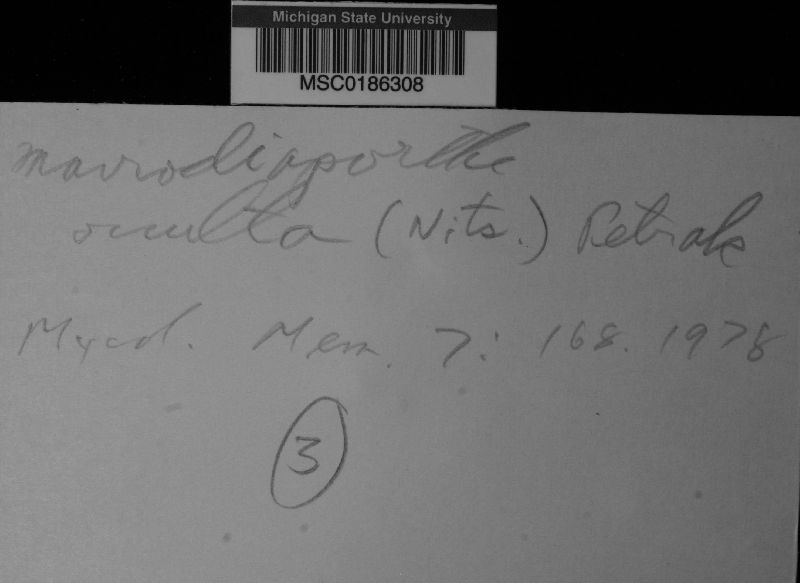 Michigan State University
MSC0186308
macrodiaporthe
occulta (Nits.) Petrak
Mycol. Mem. 7: 168. 1978
3